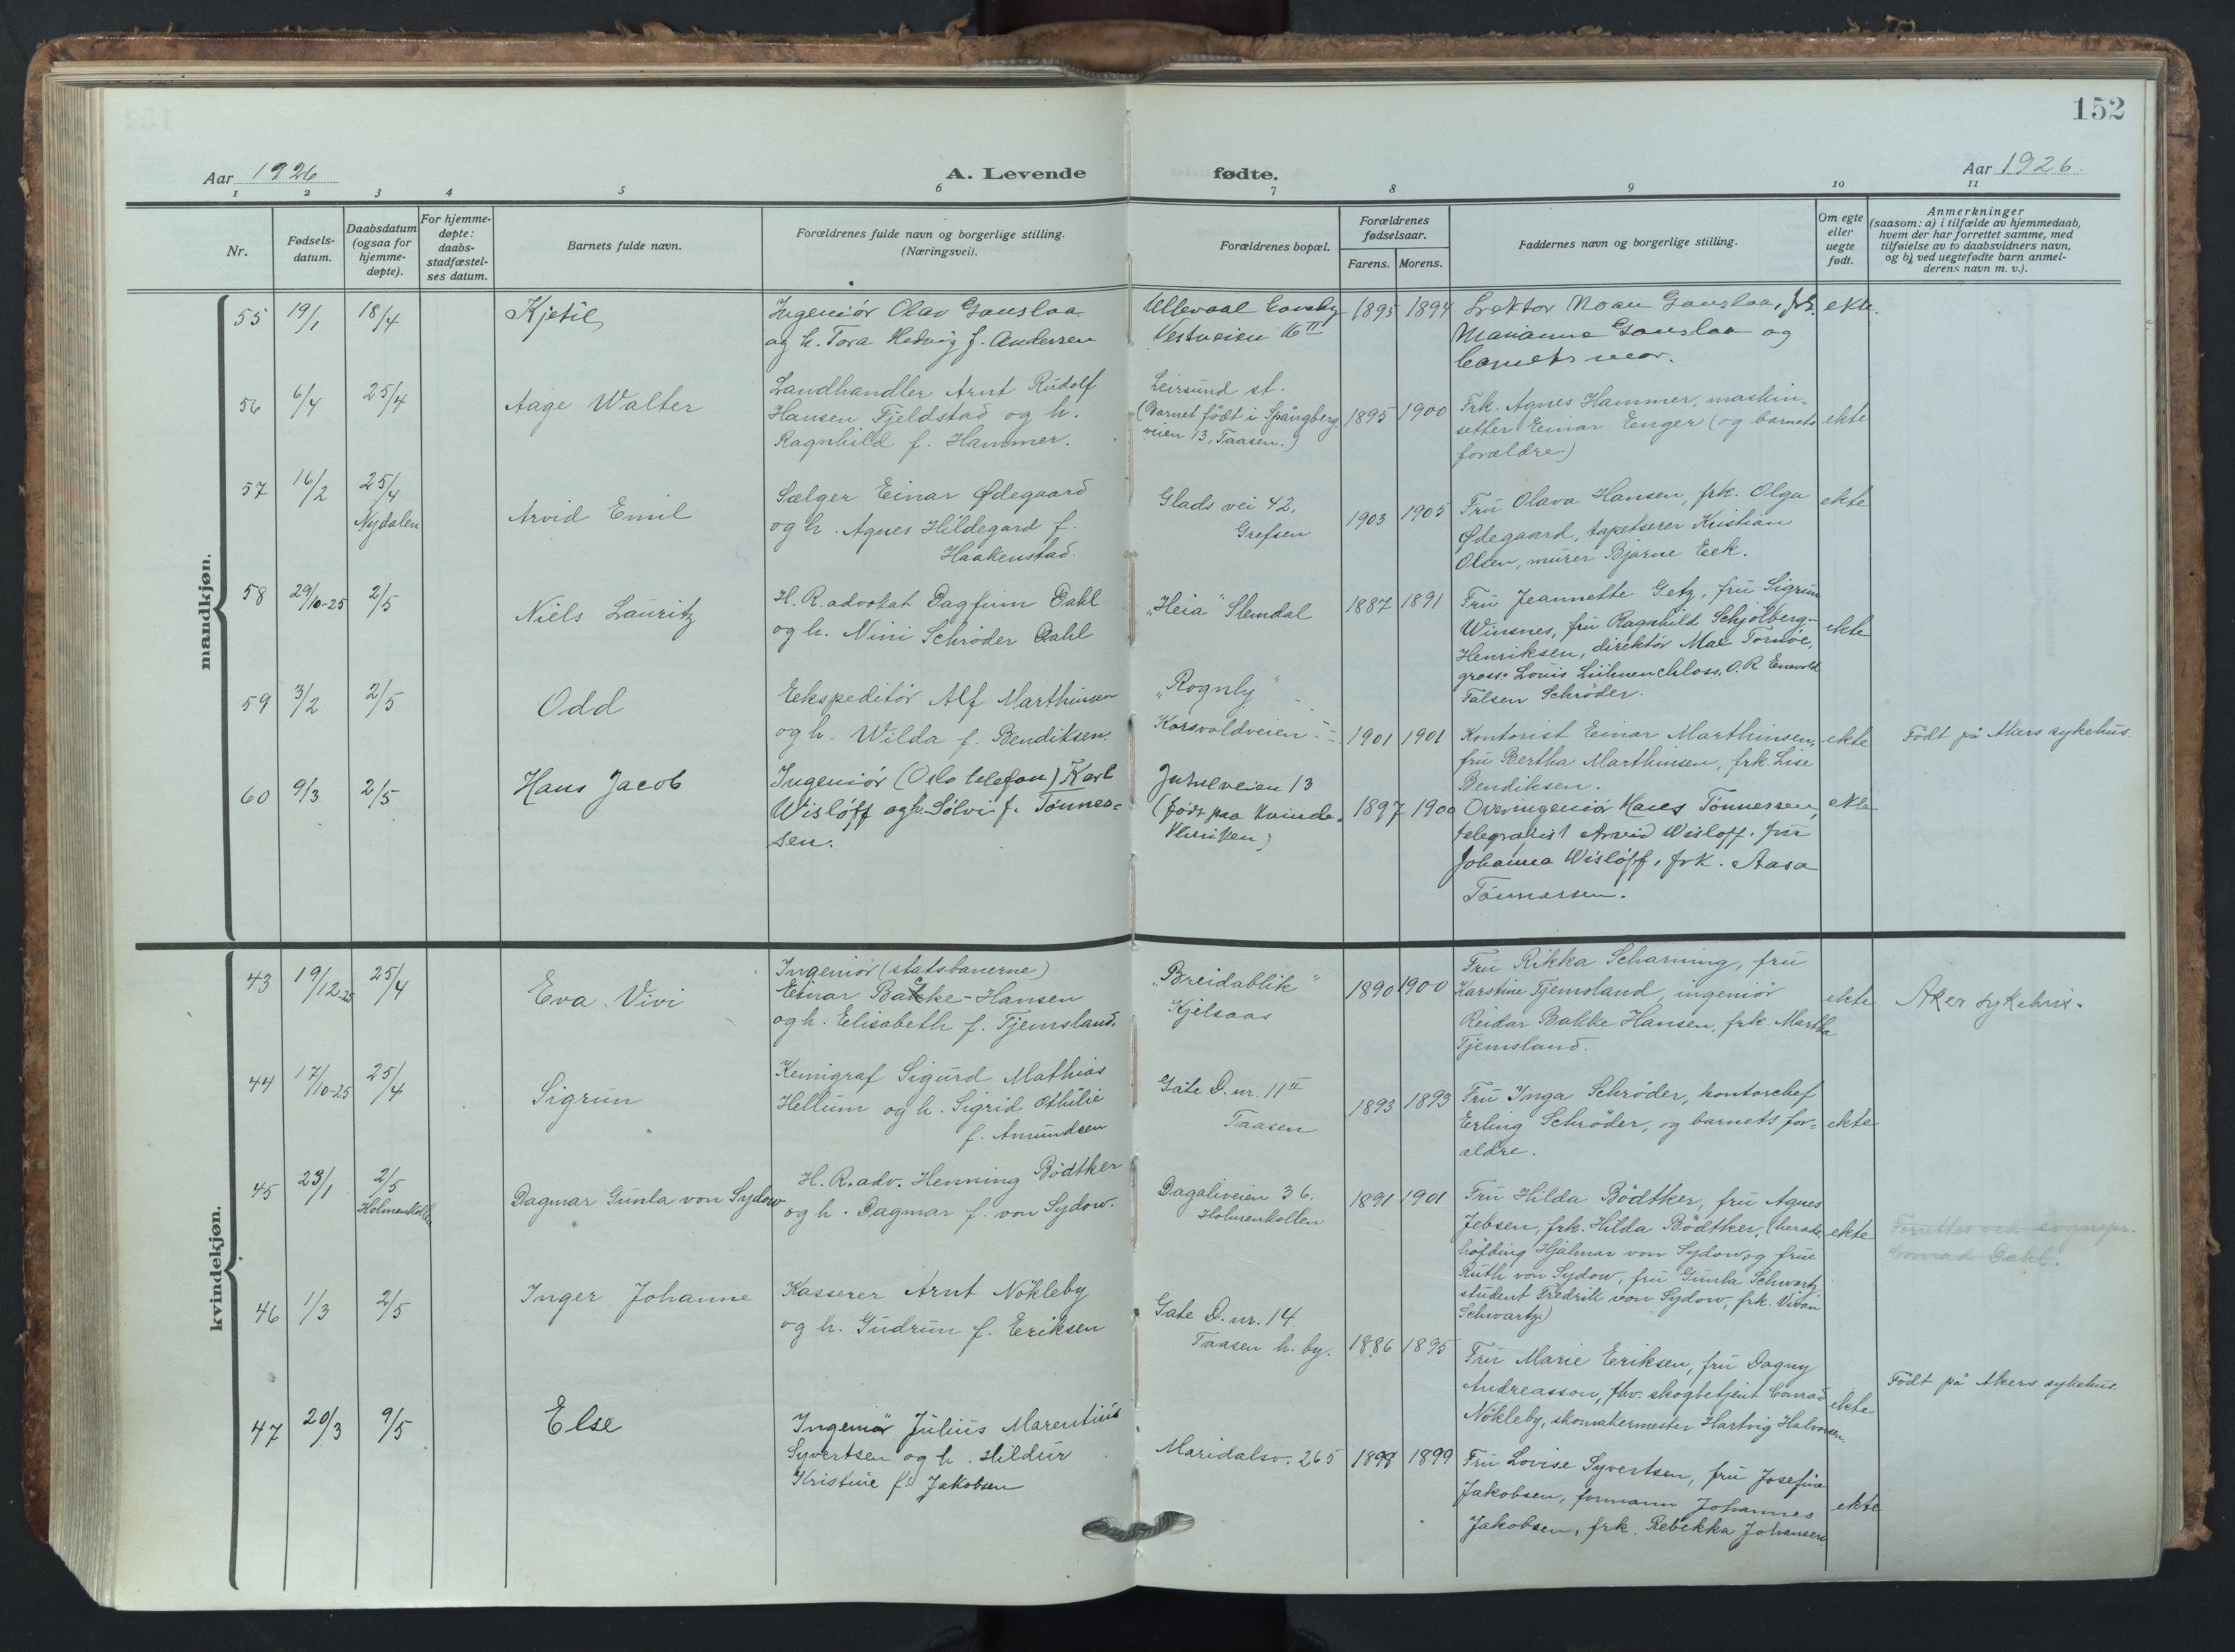 152
Aar 1926
A. Levende
fødte.
Aar 1926.
1 2 3 4 5 6 7 8 9 10 11
Nr.
Fødsels-
datum.
Daabsdatum
(ogsaa for
hjemme-
døpte).
For hjemme-
døpte:
daabs-
stadfæstel-
ses datum.
Barnets fulde navn.
Forældrenes fulde navn og borgerlige stilling.
(Næringsvei).
Forældrenes bopæl.
Forældrenes
fødselsaar.
Farens. Morens.
Faddernes navn og borgerlige stilling.
Om egte
eller
uegte
født.
Anmerkninger
(saasom: a) i tilfælde av hjemmedaab,
hvem der har forrettet samme, med
tilføielse av to daabsvidners navn,
og b) ved uegtefødte barn anmel-
derens navn m. v.).
mandkjøn.
55 19/1 18/4
Kjetil
Ingeniör Olav Gauslaa
og h. Tora Hedvig f. Andersen
Ullevaal Haveby
Vestveien 16 II
1895 1894
Lektor Noan Gauslaa, frk.
Marianne Gauslaa og
barnets mor.
ekte.
56 6/4 25/4
Aage Walter
Landhandler Arnt Rudolf
Hansen Fjeldstad og h.
Ragnhild f. Hammer.
Leirsund st.
(Barnet født i Spångberg
veien 13, Taasen.)
1895 1900
Frk. Agnes Hammer, maskin=
setter Einar Enger (og barnets
forældre)
ekte
57 16/2 25/4
Nydalen
Arvid Emil
Sælger Einar Ødegaard
og h. Agnes Hildegard f.
Haakenstad.
Glads vei 42,
Grefsen
1903 1905
Fru Olava Hansen, frk. Olga
Ødegaard, tapetserer Kristian
Olsen, murer Bjarne Eek.
ekte
58 29/10-25 2/5
Niels Lauritz
H. R. advokat Dagfinn Dahl
og h. Nini Schröder Dahl
"Heia" Slemdal
1887 1891
Fru Jeannette Getz, fru Sigrun
Winsnes, fru Ragnhild Schjölberg-
Henriksen, direktör Max Tornöe,
gross. Louis Lühnenschloss, O. R. Enevold
Falsen Schröder.
ekte
59 3/2 2/5
Odd
Ekspeditör Alf Marthinsen
og h. Wilda f. Bendiksen.
"Rognly"
Korsvoldveien
1901 1901
Kontorist Einar Marthinsen,
fru Bertha Marthinsen, frk. Lise
Bendiksen.
ekte
Födt på Akers sykehus.
60 9/3 2/5
Hans Jacob
Ingeniör (Oslo telefon) Karl
Wislöff og h. Sölvi f. Tönnes=
sen.
Jutulveien 13
(født paa Kvinde-
klinikken)
1897 1900
Overingeniör Hans Tönnessen,
telegrafist Arvid Wislöff, fru
Johanna Wislöff, frk. Aasa
Tönnessen.
ekte
kvindekjøn.
43 19/12-25 25/4
Eva Vivi
Ingeniör (statsbanerne)
Einar Bakke-Hansen
og h. Elisabeth f. Tjemsland.
"Breidablik"
Kjelsaas
1890 1900
Fru Rikka Scharning, fru
Karstine Tjemsland, ingeniör
Reidar Bakke Hansen, frk. Martha
Tjemsland.
ekte
Aker sykehus.
44 17/10-25 25/4
Sigrun
Kemigraf Sigurd Mathias
Hellum og h. Sigrid Othilie
f. Amundsen
Gate D. nr. 11 II
Taasen
1893 1893
Fru Inga Schröder, kontorchef
Erling Schröder, og barnets for=
ældre.
ekte
45 23/1 2/5
Holmenkollen
Dagmar Gunla von Sydow
H. R. adv. Henning Bödtker
og h. Dagmar f. von Sydow.
Dagaliveien 36,
Holmenkollen
1891 1901
Fru Hilda Bödtker, fru Agnes
Jebsen, frk. Hilda Bödtker, (herads-
höfding Hjalmar von Sydow og frue
Ruth von Sydow, fru Gunla Schwartz,
student Fredrik von Sydow, frk. Vivan
Schwartz)
ekte
Forrettes ved sognepr.
Conrad Dahl.
46 1/3 2/5
Inger Johanne
Kasserer Arnt Nökleby
og h. Gudrun f. Eriksen
Gate D. nr. 14.
Taasen h. by.
1886 1895
Fru Marie Eriksen, fru Dagny
Andreasson, fhv. skogbetjent Conrad
Nökleby, skomakermester Hartvig Halvorsen.
ekte
Födt på Akers sykehus.
47 20/3 9/5
Else
Ingeniör Julius Marentius
Syvertsen og h. Hildur
Kristine f. Jakobsen
Maridalsv. 265
1898 1899
Fru Lovise Syvertsen, fru Josefine
Jakobsen, formann Johannes
Jakobsen, frk. Rebekka Johansen
ekte